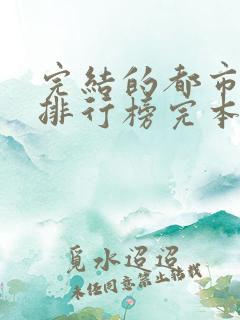 完结的都市
排行榜完本
觅水迢迢
未经同意禁止转载